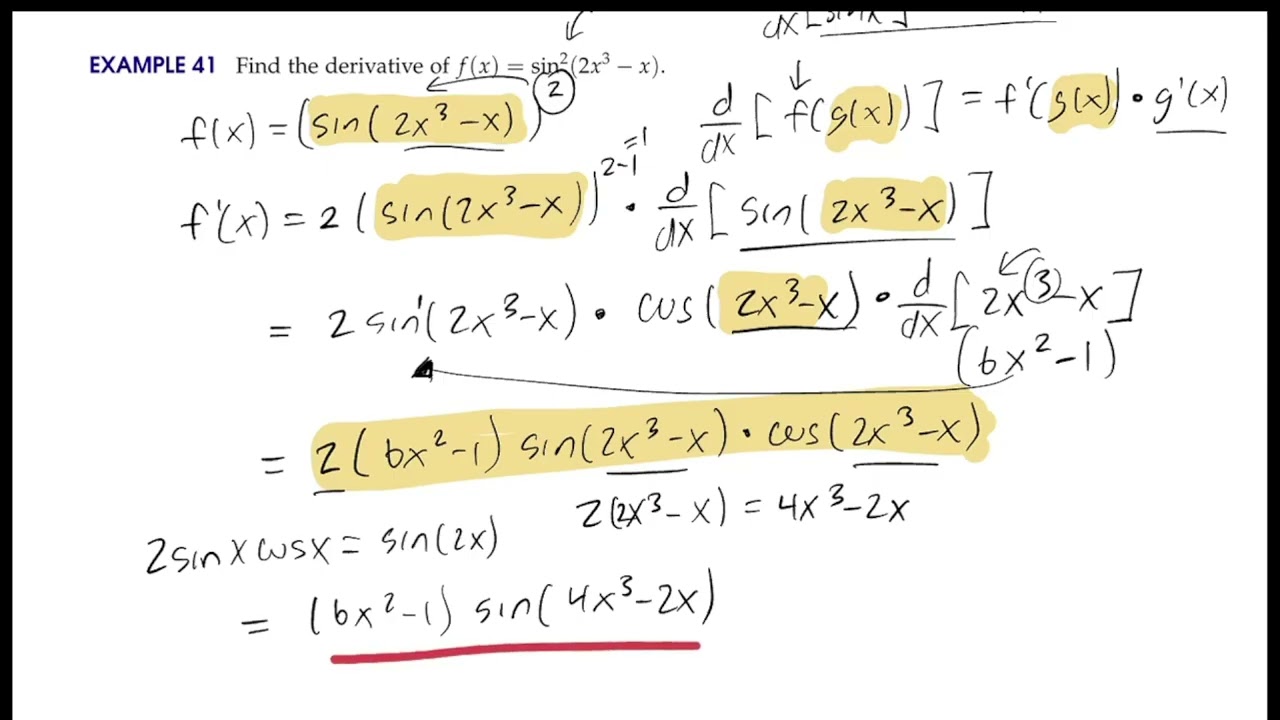 d/dx [sin x]
EXAMPLE 41 Find the derivative of f(x) = sin²(2x³ − x).
f(x) = (sin(2x³−x))²
d/dx [f(g(x))] = f'(g(x)) • g'(x)
=1
f'(x) = 2 (sin(2x³−x))²⁻¹ • d/dx [sin(2x³−x)]
= 2 sin(2x³−x) • cos(2x³−x) • d/dx [2x³−x]
(6x²−1)
= 2(6x²−1) sin(2x³−x) • cos(2x³−x)
2(2x³−x) = 4x³−2x
2sinxcosx = sin(2x)
= (6x²−1) sin(4x³−2x)